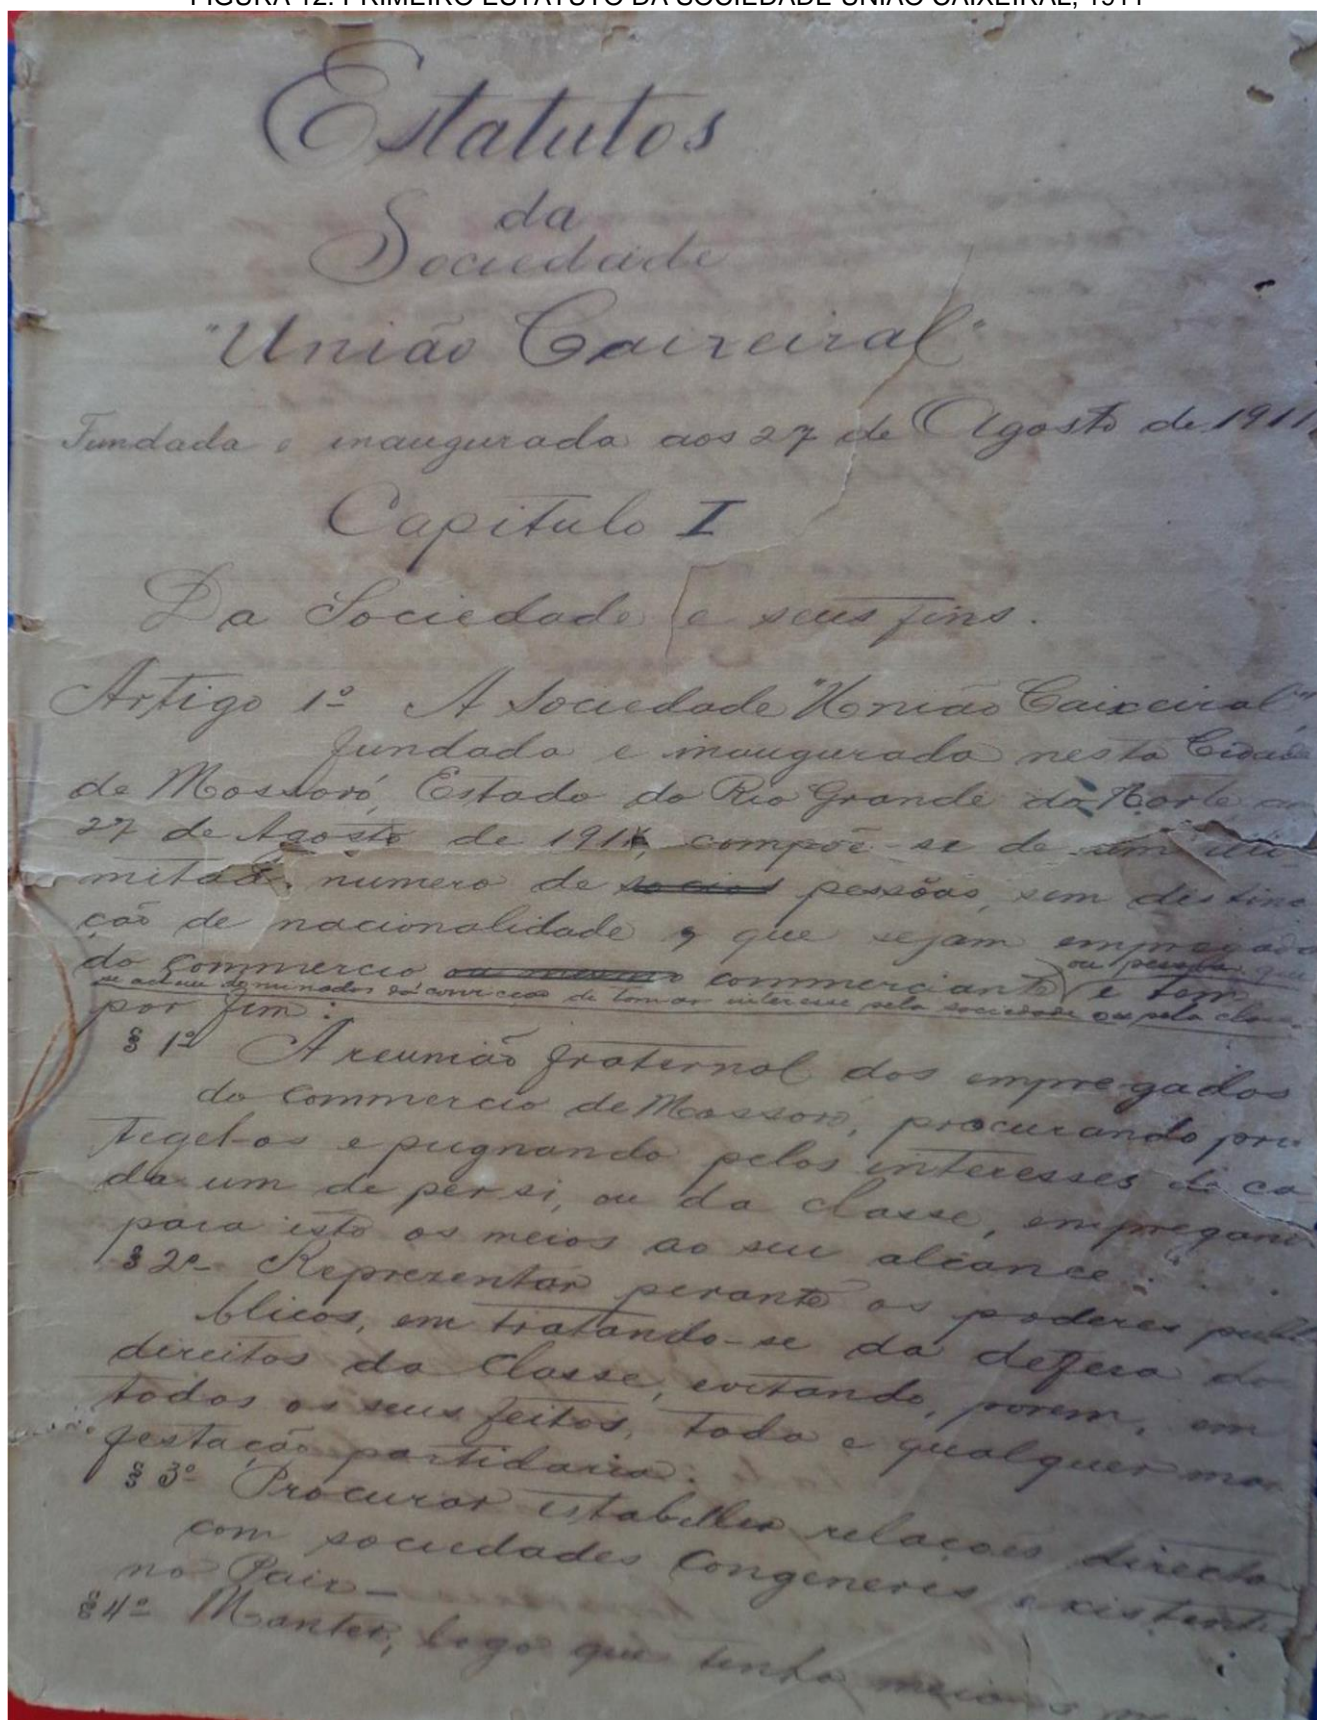 FIGURA 12: PRIMEIRO ESTATUTO DA SOCIEDADE UNIÃO CAIXEIRAL, 1911
Estatutos
da
Sociedade
"União Caixeiral"
Fundada e inaugurada aos 27 de Agosto de 1911.
Capitulo I
Da Sociedade e seus fins.
Artigo 1º A Sociedade "União Caixeiral",
fundada e inaugurada nesta Cidade
de Mossoró, Estado do Rio Grande do Norte
27 de Agosto de 1911, compõe-se de um illi
mitado numero de socios pessôas, sem destinc
ção de nacionalidade, que sejam empregado
do Commercio ou mesmo commerciante e tem
ou pessoas que
se achem dominados da convicção de tomar interesse pela sociedade ou pela classe
por fim:
§ 1º A reunião fraternal dos empregados
do Commercio de Mossoró, procurando pro
tegel-os e pugnando pelos interesses de ca
da um de per si, ou da classe, empregan
para isto os meios ao seu alcance.
§ 2º Reprezentar perante os poderes pub
blicos, em tratando-se da defeza do
direitos da Classe, evitando, porem, em
todos os seus feitos, toda e qualquer ma
festação partidaria.
§ 3º Procurar relações directa
com sociedades Congeneres existente
no Paiz—
§ 4º Manter, logo que tenha meios